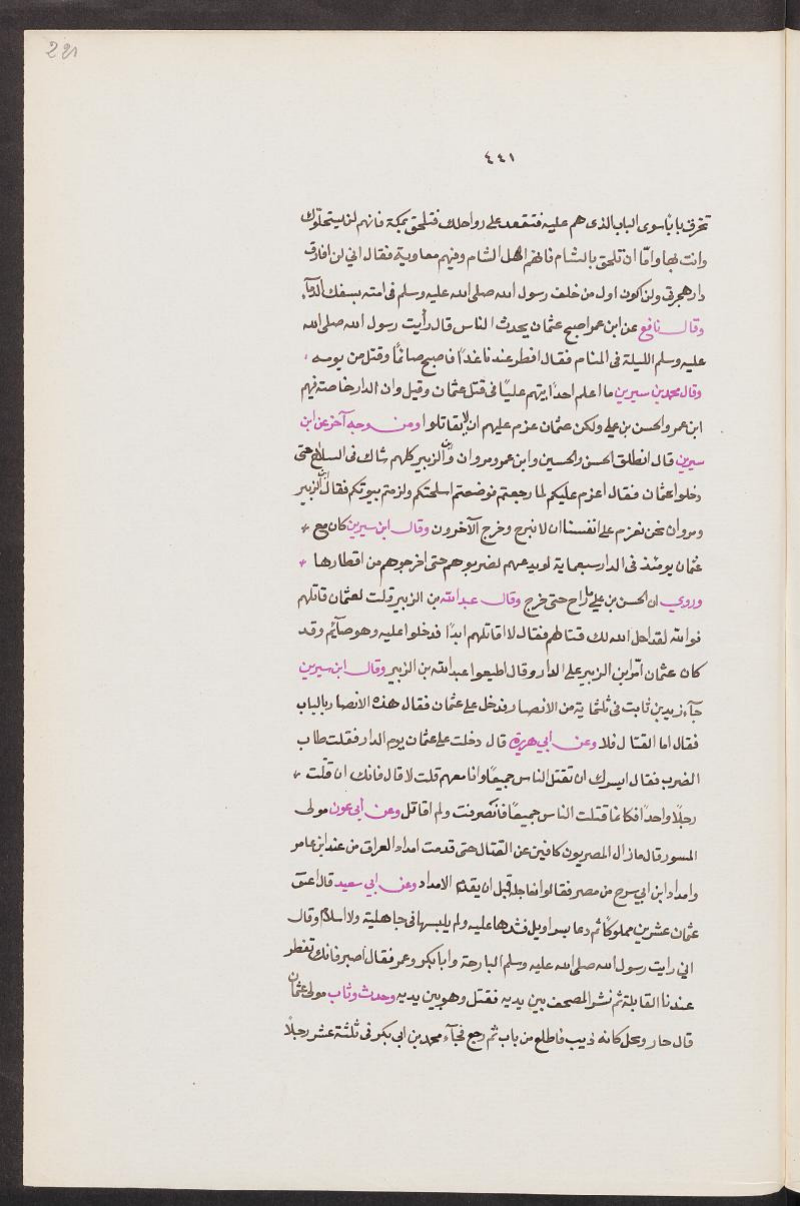 221
٤٤١
تخرق بابا سوى الباب الذى هم عليه فتقعد على رواحلك فتلحق بمكة فانهم لن يستحلوك
وانت بها واما ان تلحق بالشام فانهم اهل الشام وفيهم معاوية فقال انى لن افارق
دار هجرتى ولن اكون اول من خلف رسول الله صلى الله عليه وسلم فى امته بسفك الدمآء
وقال نافع عن ابن عمر اصبح عثمان يحدث الناس قال رأيت رسول الله صلى الله
عليه وسلم الليلة فى المنام فقال افطر عندنا غدًا فاصبح صائمًا وقتل من يومه
وقال محمد بن سيرين ما اعلم احدًا يتهم عليًا فى قتل عثمان وقيل وان الدار خاصته فيهم
ابن عمر والحسن بن على ولكن عثمان عزم عليهم ان لا يقاتلوا ومن وجه آخر عن ابن
سيرين قال انطلق الحسن والحسين وابن عمر ومروان وابن الزبير كلهم شاك فى السلاح حتى
دخلوا عثمان فقال اعزم عليكم لما رجعتم فوضعتم اسلحتكم ولزمتم بيوتكم فقال ابن الزبير
ومروان نحن نعزم على انفسنا ان لا نبرح وخرج الآخرون وقال ابن سيرين كان مع
عثمان يومئذ فى الدار سبعماية لو يدعهم لضربوهم حتى اخرجوهم من اقطارها
وروي ان الحسن بن على ما راح حتى خرج وقال عبد الله بن الزبير قلت لعثمان قاتلهم
فوالله لقد احل الله لك قتالهم فقال لا اقاتلهم ابدًا فدخلوا عليه وهو صآئم وقد
كان عثمان امّر ابن الزبير على الدار وقال اطيعوا عبد الله بن الزبير وقال ابن سيرين
جآء زيد بن ثابت فى ثلثماية من الانصار فدخل على عثمان فقال هذه الانصار بالباب
فقال اما القتال فلا وعن ابي هريرة قال دخلت على عثمان يوم الدار فقلت طاب
الضرب فقال ايسرك ان تقتل الناس جميعًا وانا معهم قلت لا قال فانك ان قتلت
رجلًا واحدًا فكانما قتلت الناس جميعًا فانصرفت ولم اقاتل وعن أبى عون مولى
المسور قال ما زال المصريون كافين عن القتال حتى قدمت امداد العراق من عند ابن عامر
وامداد ابن ابى سرح من مصر فقالوا نعاجله قبل ان يقدم الامداد وعن ابي سعيد قال اعتق
عثمان عشرين مملوكًا ثم دعا بسراويل فشدها عليه ولم يلبسها فى جاهلية ولا اسلام وقال
انى رايت رسول الله صلى الله عليه وسلم البارحة وابا بكر وعمر فقال اصبر فانك تفطر
عندنا القابلة ثم نشر المصحف بين يديه فقتل وهو بين يديه وحدث وثاب مولى عثمان
قال جار وبجل كانه ذيب فاطلع من باب ثم رجع فجآء محمد بن ابى بكر فى ثلثة عشر رجلًا